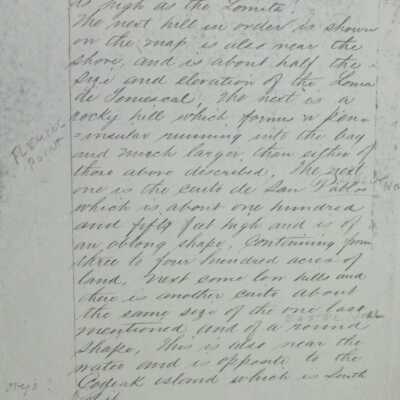 is high as the Lomita.
The next hill in order is shown
on the map is also near the
shore, and is about half the
size and elevation of the Loma
de Temescal, The next is a
rocky hill which forms a pen-
=insular running into the bay
and much larger, than either of
those above described. The next
one is the cerito de San Pablo
which is about one hundred
and fifty feet high and is of
an oblong shape, Containing from
three to four hundred acres of
land, Next come low hills and
there is another cerito about
the same size of the one last
mentioned, and of a round
shape, This is also near the
water and is opposite to the
island which is South
POINT